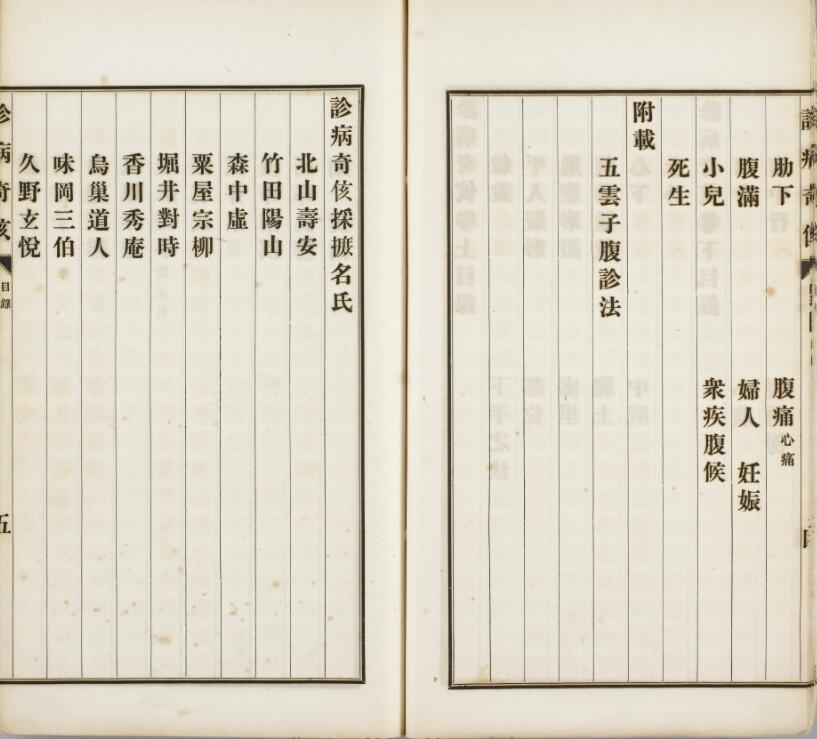 肋下 腹痛心痛
腹滿 婦人 妊娠
小兒 衆疾腹候
死生
附載
五雲子腹診法
診病奇侅採摭名氏
北山壽安
竹田陽山
森中虛
粟屋宗柳
堀井對時
香川秀庵
烏巢道人
味岡三伯
久野玄悅
目錄
五